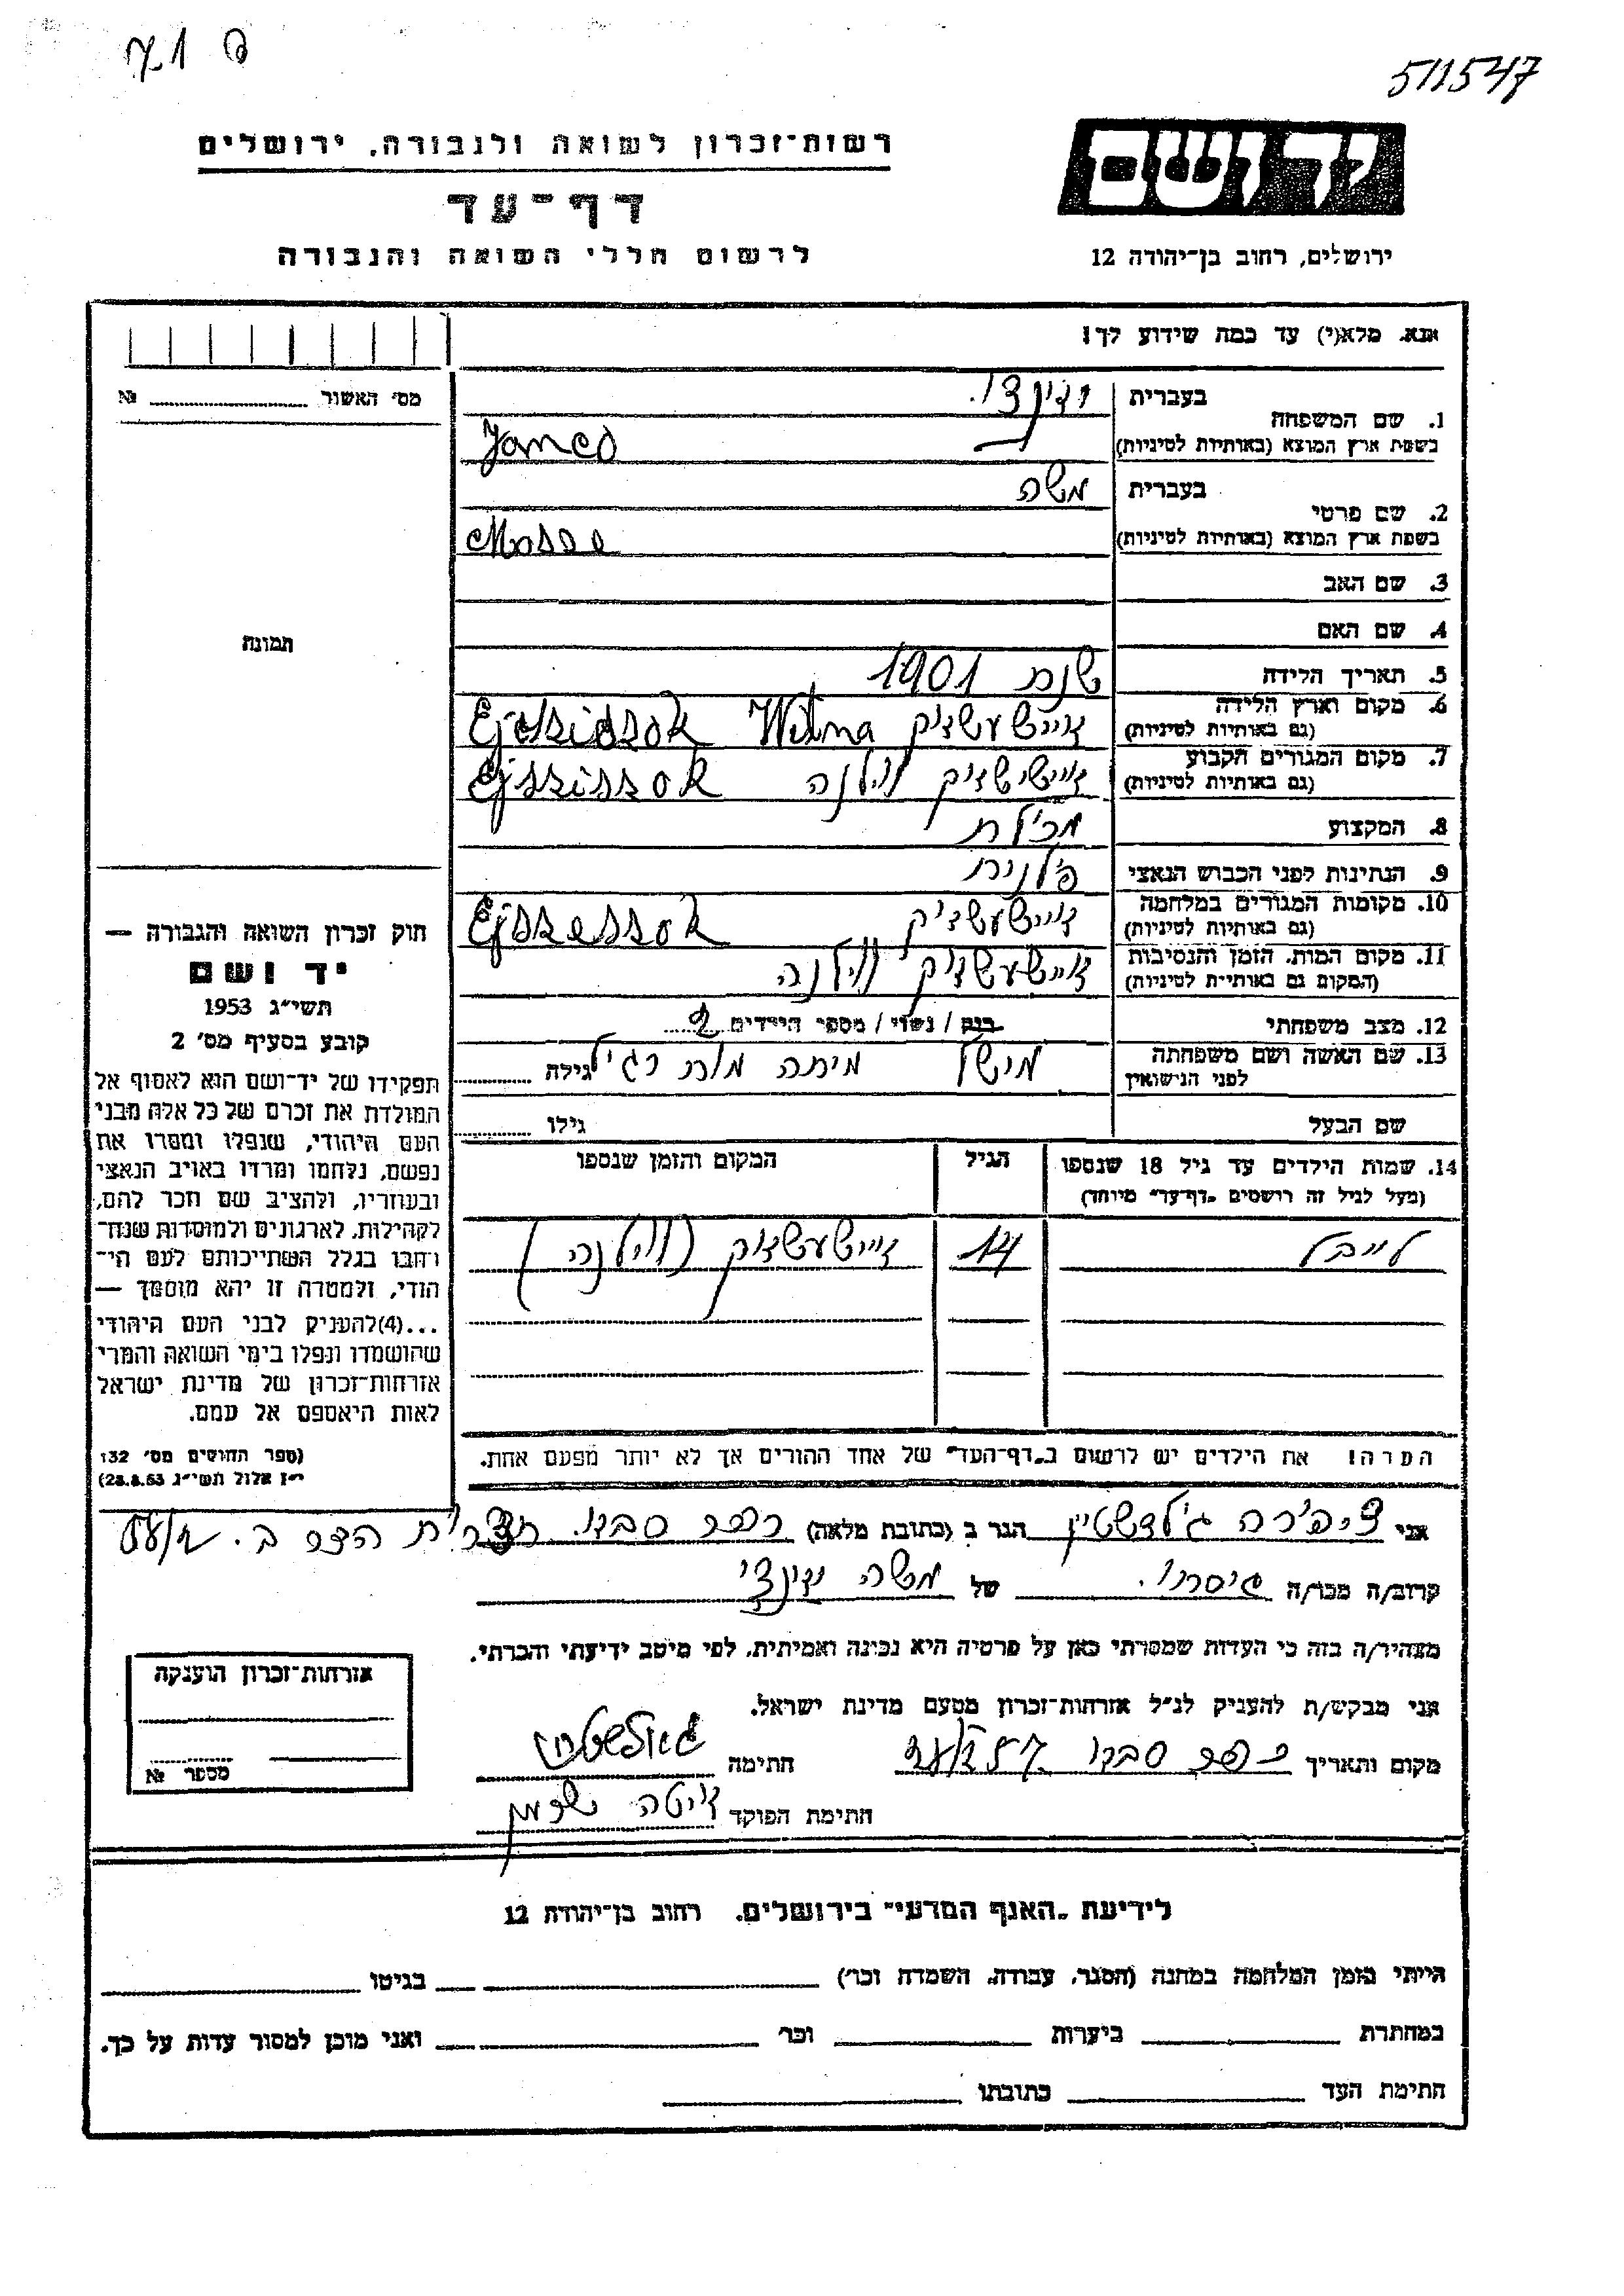 511547
רשות־זכרון לשואה ולגבורה, ירושלים
יד ושם
דף־עד
לרשום חללי השואה והגבורה
ירושלים, רחוב בן־יהודה 12
אנא, מלא(י) עד כמה שידוע לך!
מס׳ האשור № 
1. שם המשפחה
בעברית
בשפת ארץ המוצא (באותיות לטיניות)
2. שם פרטי
בעברית משה
בשפת ארץ המוצא (באותיות לטיניות)
3. שם האב
4. שם האם
תמונה
5. תאריך הלידה שנת 1901
6. מקום וארץ הלידה
(גם באותיות לטיניות)
7. מקום המגורים הקבוע וילנה
(גם באותיות לטיניות) Ejsziszok
8. המקצוע
9. הנתינות לפני הכבוש הנאצי
10. מקומות המגורים במלחמה
(גם באותיות לטיניות)
11. מקום המות, הזמן והנסיבות
(המקום גם באותיות לטיניות)
12. מצב משפחתי רווק / נשוי / מספר הילדים 2
13. שם האשה ושם משפחתה
לפני הנישואין גילה
שם הבעל גילו
14. שמות הילדים עד גיל 18 שנספו
(מעל לגיל זה רושמים „דף־עד״ מיוחד)
הגיל
המקום והזמן שנספו
לייבל 14 (וילנה)
הערה! את הילדים יש לרשום ב„דף־העד״ של אחד ההורים אך לא יותר מפעם אחת.
חוק זכרון השואה והגבורה —
יד ושם
תשי״ג 1953
קובע בסעיף מס׳ 2
תפקידו של יד־ושם הוא לאסוף אל
המולדת את זכרם של כל אלה מבני
העם היהודי, שנפלו ומסרו את
נפשם, נלחמו ומרדו באויב הנאצי
ובעוזריו, ולהציב שם וזכר להם,
לקהילות, לארגונים ולמוסדות שנח־
רבו בגלל השתייכותם לעם הי־
הודי, ולמטרה זו יהא מוסמך —
...(4)להעניק לבני העם היהודי
שהושמדו ונפלו בימי השואה והמרי
אזרחות־זכרון של מדינת ישראל
לאות היאספם אל עמם.
(ספר החוקים מס׳ 132
י״ז אלול תשי״ג 28.8.53)
אני ציפורה גולדשטיין הגר ב (כתובת מלאה) כפר סבא
קרוב/ה מכר/ה גיסתו של משה
מצהיר/ה בזה כי העדות שמסרתי כאן על פרטיה היא נכונה ואמיתית, לפי מיטב ידיעתי והכרתי.
אני מבקש/ת להעניק לנ״ל אזרחות־זכרון מטעם מדינת ישראל.
מקום ותאריך כפר סבא חתימה
חתימת הפוקד
אזרחות־זכרון הוענקה
מספר №
לידיעת „האגף המדעי״ בירושלים, רחוב בן־יהודה 12
הייתי בזמן המלחמה במחנה (הסגר, עבודה, השמדה וכו׳) בגיטו
במחתרת ביערות וכו׳ ואני מוכן למסור עדות על כך.
חתימת העד כתובתו